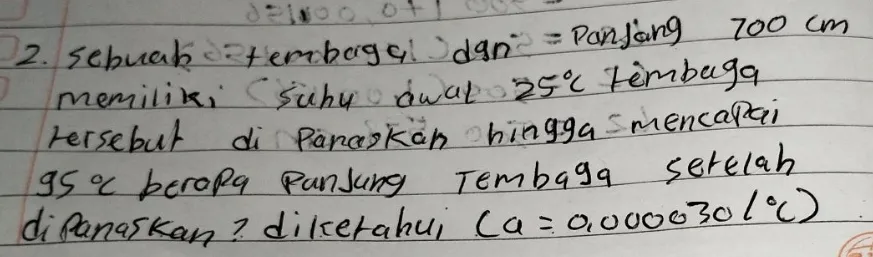 2. sebuah tembaga dgn = Panjang 700 cm
memiliki suhu awal 25°C tembaga
tersebut di Panaskan hingga mencapai
95 °c berapa Panjang Tembaga setelah
di Panaskan? diketahui (a = 0,000030/°C)